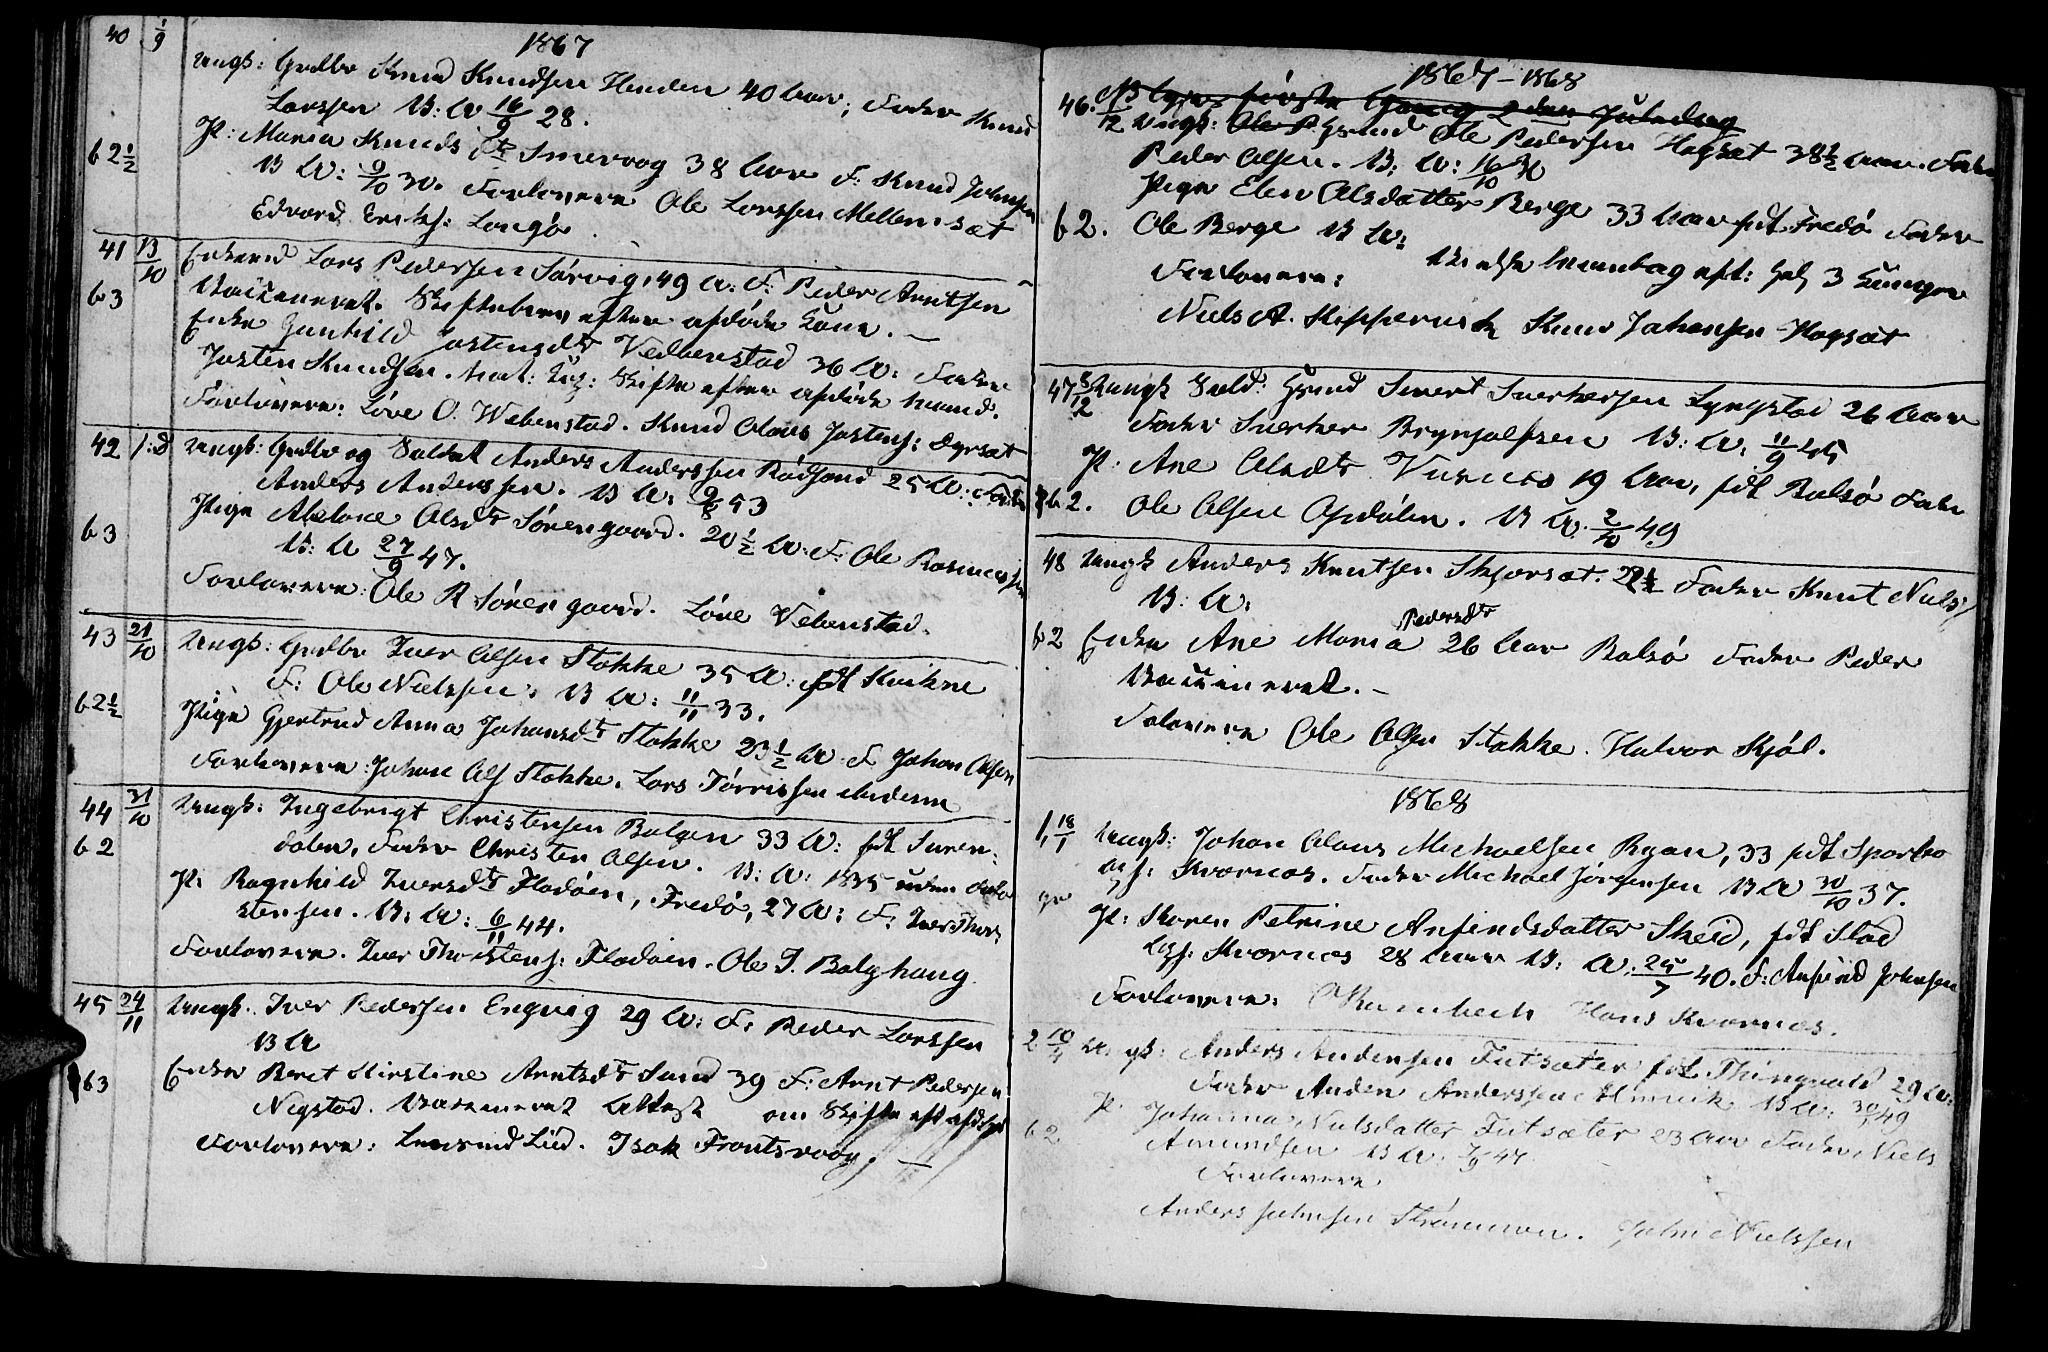 1867
40 1/9 Ungk: Grdbr Knud Knudsen Henden 40 Aar, Fader Knud
Larssen B: A 16/9 28.
P: Maria Knudsdtr Smevaag 38 Aar F: Knud Johnsen
6 2 1/2 B A: 9/10 30. Forlovere Ole Larssen Mellemsæt
Edvard Eriks: Langø.
41 13/10 Enkemd Lars Pedersen Sørvig, 49 A: F: Peder Arntsen
6 3 Vaccineret. Skiftebrev efter afdøde Kone. —
Enke Gunhild Jostensdtr Vebenstad 36 A: Fader
Josten Knudsen. Nat: Vac: Skifte efter afdøde Mand.
Forlovere: Love O. Webenstad. Knud Olaus Jostens: Dyrsæt
42 1:d Ungk: Grdbr og Soldat Anders Anderssen Rødsand 25 A: Fader
Anders Anderssen. B A: 9/8 53
Pige Abelone Olsdtr Sørengaard. 20 1/2 A: F: Ole Rasmussen
6 3 B: A 27/9 47.
Forlovere: Ole R Sørengaard. Love Vebenstad.
43 21/10 Ungk: Grdbr Iver Olsen Stokke 35 A: fdt Kvikne
F: Ole Nielssen. B A: 11/11 33.
6 2 1/2 Pige Gjertrud Anna Johansdtr Stokke 23 1/2 A F Johan Olsen
Forlovere: Johan Ols Stokke. Lars Tørrissen
44 31/10 Ungk: Ingebrigt Christensen Bolgen 33 A: fdt Suren-
6 2 dalen, Fader Christen Olsen. B: A: 1835 uden Dato
P: Ragnhild Iversdtr Fladøen, Fredø, 27 A: F: Iver Thor-
stensen. B: A: 6/11 44.
Forlovere. Iver Thorstens: Fladøen. Ole I. Bolghaug
45 24/11 Ungk. Iver Pedersen Engvig 29 A: F: Peder Larssen
B A
63 Enke Beret Kirstine Arntsdtr Sund 39 F: Arnt Pedersen
Negstad. Vaccineret Attest om Skifte eft afdøde
Forlovere: Lied. Isak Frantsvaag. —
1867-1868
første Gang 2den Juledag
46. /12 Ungk: Ole P. Grmd Ole Pedersen Hagsæt 38 1/2 Aar. Fader
Peder Olsen. B: A: 16/10 30
Pige Elen Olsdatter Berge 33 Aar fdt Fredø Fader
6 2. Ole Berge B A:
Forlovere:
Niels A. Skippervik Knud Johansen Hagsæt
47 8/12 Ungk Sold: Grmd Sivert Sverkersen Lyngstad 26 Aar
Fader Sverker Brynjulfsen B: A: 11/9 45
P: Ane Olsdtr Visnes 19 Aar, fdt Bolsø Fader
62. Ole Olsen Opdølen. B A. 2/10 49
48 Ungk Anders Knutsen Skjorsæt. 29 1/2 Fader Knut Niels:
B: A:
6 2 Enke Ane Maria Pedersdtr 26 Aar Bolsø Fader Peder
Vaccineret. —
Folovere Ole Olsen Stokke. Halvor Kjøl.
1868
1, 18/1 Ungk: Johan Olaus Michaelsen Ryan, 33 fdt Sparbo
Kværnes. Fader Michael Jørgensen B A 30/10 37.
P: Karen Petrine Anfindsdatter Skeid, fdt Stod
Kværnes 28 Aar B: A: 25/7 40. F: Anfind Johnsen
Forlovere: Hans Kværnes.
2 10/4 Ungk: Anders Andersen Futsæter fdt Thingvold 29 A:
Fader Anders Anderssen B A: 30/ 49
P. Johanna Nielsdatter Futsæter 23 Aar Fader Niels
62 Amundsen B A: 7/9 47
Forlovere
Anders Johnsen Strømmen. John Nielssen